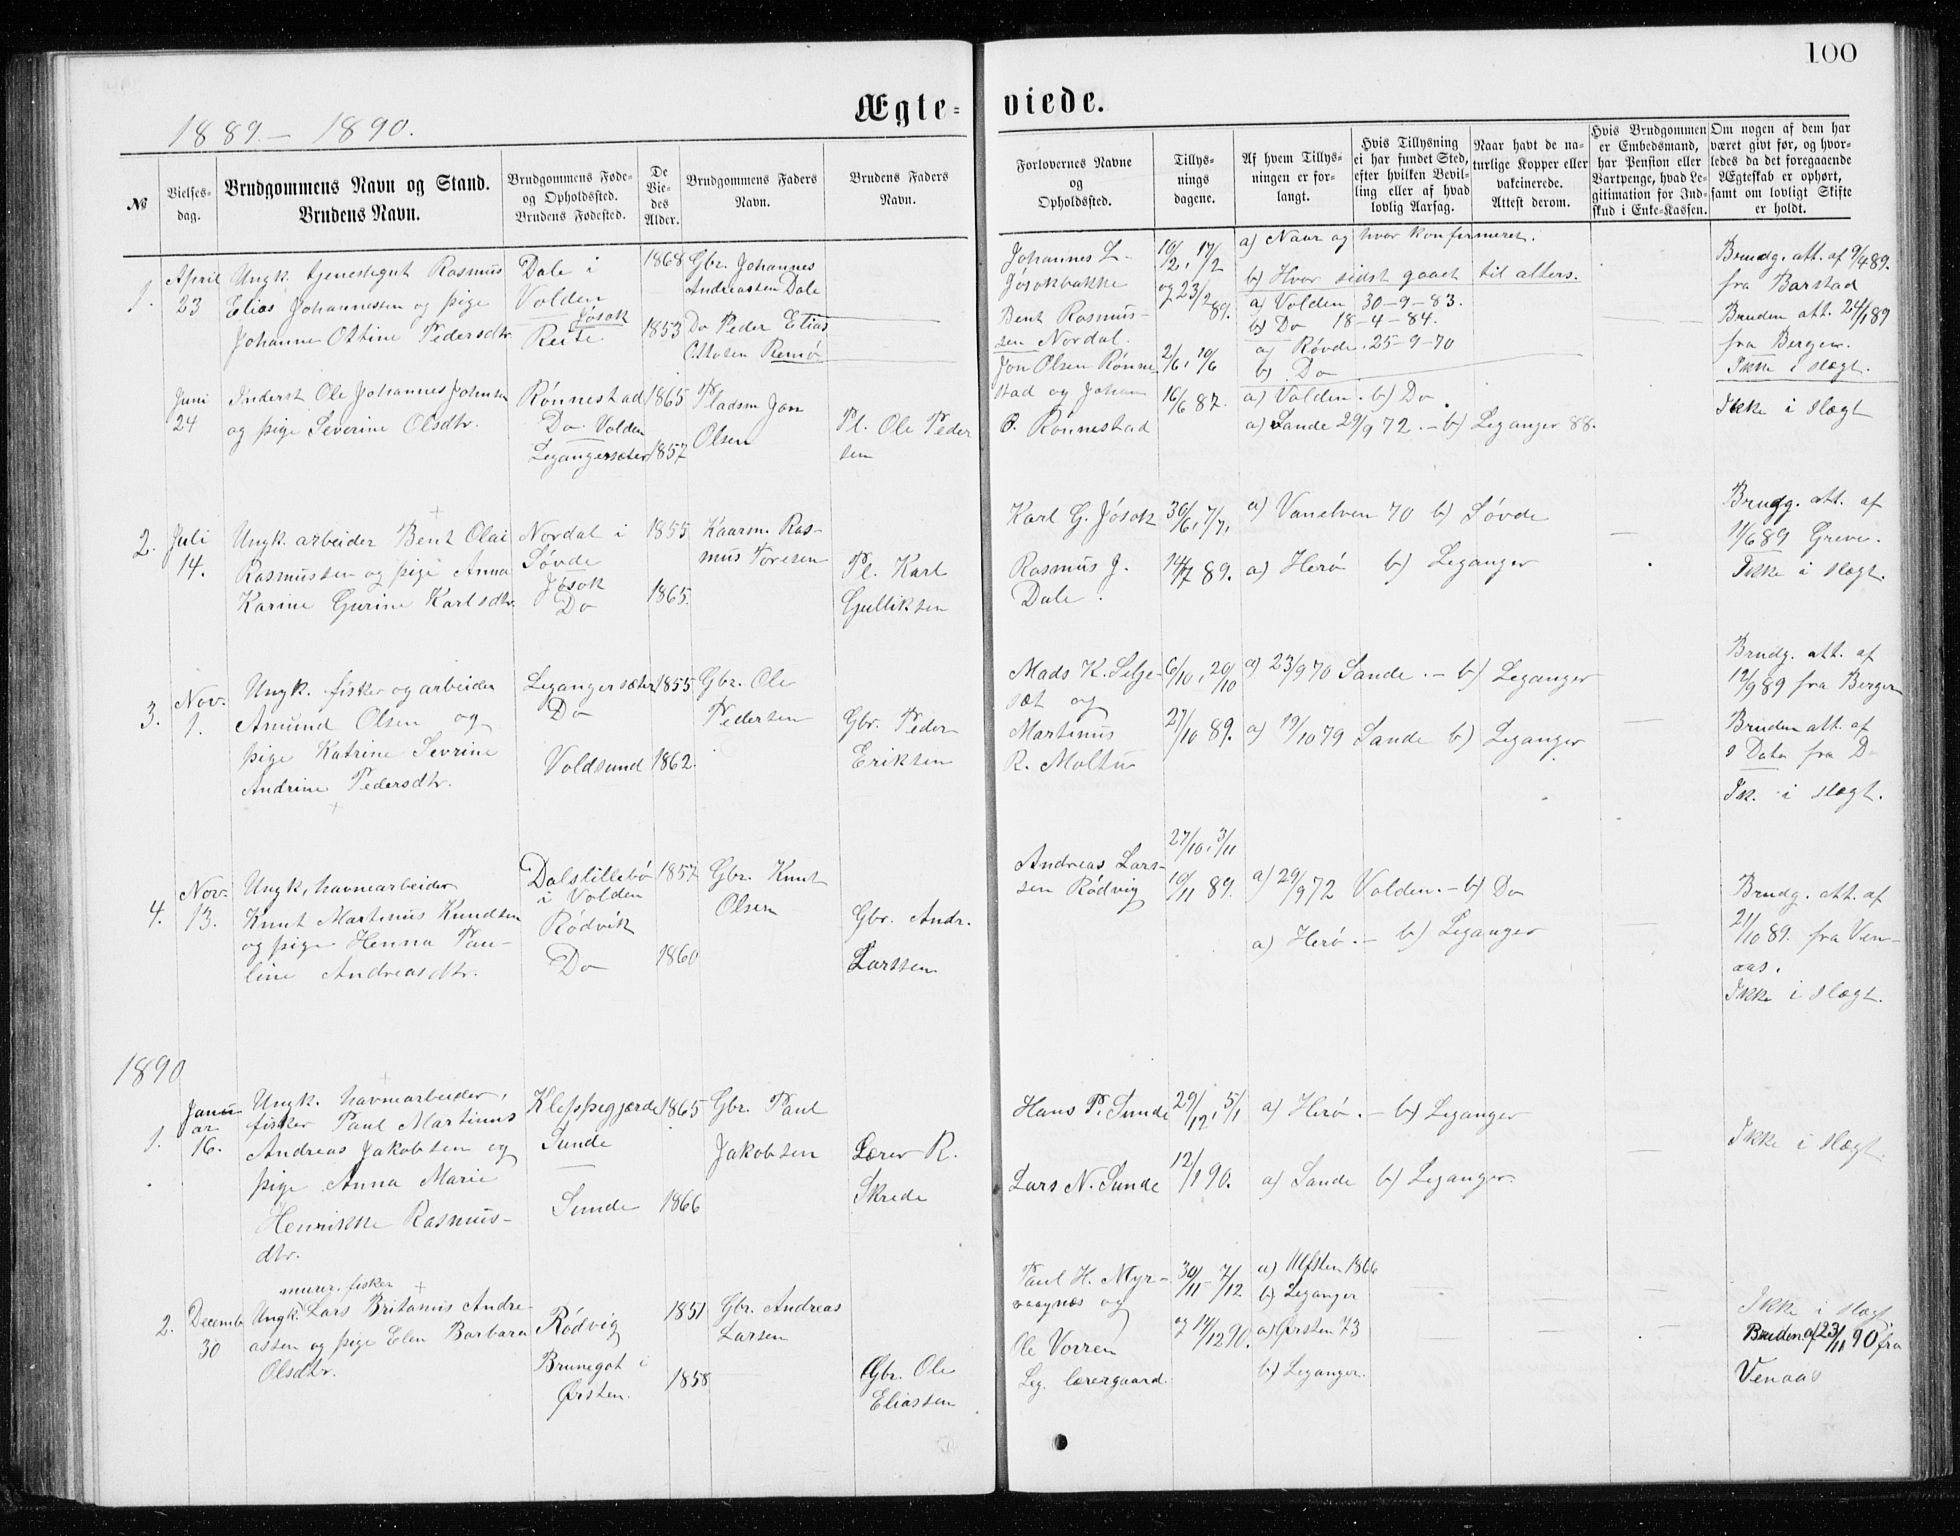 100
Ægte-
viede.
1889.- 1890.
№
Vielses-
dag.
Brudgommens Navn og Stand.
Brudens Navn.
Brudgommens Føde-
og Opholdssted.
Brudens Fødested.
De
Vie-
des
Alder.
Brudgommens Faders
Navn.
Brudens Faders
Navn.
Forlovernes Navne
og
Opholdssted.
Tillys-
nings
dagene.
Af hvem Tillys-
ningen er for-
langt.
Hvis Tillysning
ei har fundet Sted,
efter hvilken Bevil-
ling eller af hvad
lovlig Aarsag.
Naar havt de na-
turlige Kopper eller
vakcinerede.
Attest derom.
Hvis Brudgommen
er Embedsmand,
har Pension eller
Vartpenge, hvad Le-
gitimation for Ind-
skud i Enke-Kassen.
Om nogen af dem har
været givt før, og hvor-
ledes da det foregaaende
Ægteskab er ophørt,
samt om lovligt Skifte
er holdt.
1.
April
23
Ungk. tjenestegut Rasmus
Elias Johannessen og pige
Johanne Ottine Pedersdtr.
Dale i
Volden
Jøsok
Reite
1868
1853
Gbr. Johannes
Andreassen Dale
Do Peder Elias
Ottosen Remø
Johannes L-
Jøsokbakke
Bent Rasmus-
sen Nordal.
10/2, 17/2
og 23/2 89.
a) Naar og hvor konfirmeret.
b) Hvor sidst gaaet til alters.
a) Volden 30-9-83.
b) Do 18-4-84.
a) Røvde. 25-9-70
b) Do
Brudg. att. af 9/4 89.
fra Barstad
Bruden att. 24/1 89
fra Bergen.
Ikke i slægt.
Juni
24
Inderst Ole Johannes Johnsen
og pige Severine Olsdtr.
Rønnestad
Do Volden
Legangersæter
1865
1857
Pladsm Jon
Olsen
Pl. Ole Peder
sen
Jon Olsen Rønne
stad og Johan
O. Rønnestad
2/6, 10/6
16/6 87.
a) Volden. b) Do.
a) Sande 29/9 72. - b) Leganger 88.
Ikke i slægt
2.
Juli
14.
Ungk. arbeider Bent Olai
Rasmussen og pige Anna
Karine Gurine Karlsdtr.
Nordal i
Søvde
Jøsok
Do
1855
1865.
Kaarm. Ras-
mus Toresen
Pl. Karl
Gulliksen
Karl G. Jøsok
Rasmus J.
Dale.
30/6, 7/7,
14/7 89.
a) Vanelven 70 b) Søvde
a) Herø b) Leganger
Brudg. att. af
11/6 89 Greve.
Ikke i slægt.
3.
Nov.
1.
Ungk. fisker og arbeider
Amund Olsen og
pige Katrine Sevrine
Andrine Pedersdtr.
Legangersæter
Do
Voldsund
1855
1862.
Gbr. Ole
Pedersen
Gbr. Peder
Eriksen
Mads K. Selje-
sæt og
Martinus
R. Moltu
6/10, 20/10
27/10 89.
a) 23/9 70 Sande. - b) Leganger
a) 19/10 79 Sande b) Leganger
Brudg. att. af
12/9 89 fra Bergen
Bruden att. af
s Dato fra D-
Ik. i slægt.
4.
Nov.
13.
Ungk, havnearbeider
Knut Martinus Knudsen
og pige Henna Pau-
line Andreasdtr.
Dalstillebø
i Volden
Rødvik
Do
1857
1860
Gbr. Knut
Olsen
Gbr. Andr.
Larssen
Andreas Lars-
sen Rødvig
27/10, 3/11
10/11 89.
a) 29/9 72 Volden. - b) Do
a) Herø. - b) Leganger
Brudg. att. af
21/10 89. fra Ven-
aas.
Ikke i slægt.
1890
1.
Janu
ar
16.
Ungk. havnearbeider,
fisker Paul Martinus
Andreas Jakobsen og
pige Anna Marie
Henrikke Rasmus-
dtr.
Kleppegjærde
Sunde
Sunde
1865
1866
Gbr. Paul
Jakobsen
Lærer R.
Skrede
Hans P. Sunde
Lars N. Sunde
29/12, 5/1
12/1 90.
a) Herø. - b) Leganger
a) Sande b) Leganger.
Ikke i slægt.
2.
Decemb
30
murer. fisker
Ungk. Lars Britanus Andre-
assen og pige Elen Barbara
Olsdtr.
Rødvig
Brunegot i
Ørsten.
1851
1858
Gbr. Andreas
Larsen
Gbr. Ole
Eliassen
Paul H. Myr-
vaagnæs og
Ole Vorren
Leg. lærergaard.
30/11 - 7/12
og 14/12 90.
a) Ulfsten 1866
b) Leganger
a) Ørsten 73
b) Leganger.
Ikke i slægt.
Bruden af 23/11 90 fra
Venaas